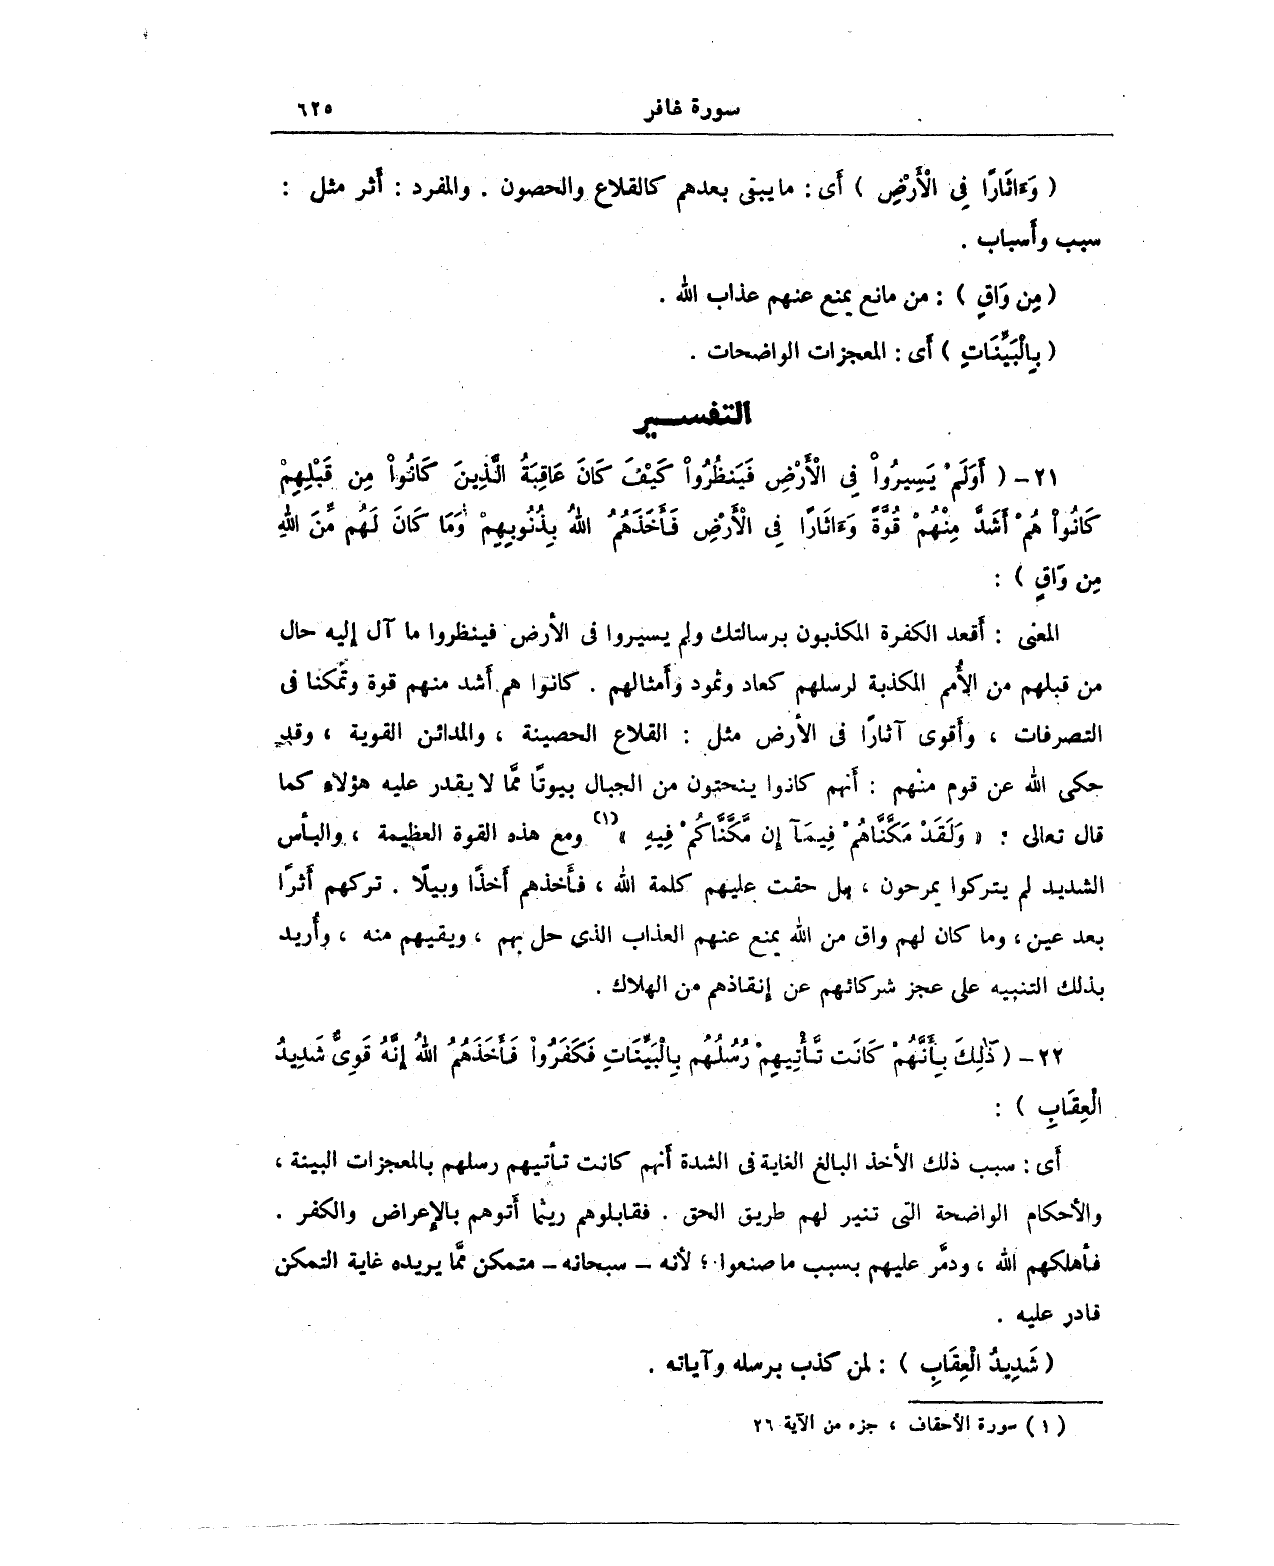 سورة غافر ٦٢٥
( وَءَاثَارًا فِى الْأَرْضِ ) أى : ما يبقى بعدهم كالقلاع والحصون . والمفرد : أثر مثل :
سبب وأسباب .
( مِن وَاقٍ ) : من مانع يمنع عنهم عذاب الله .
( بِالْبَيِّنَاتِ ) أى : المعجزات الواضحات .
التفسير
٢١- ( أَوَلَمْ يَسِيرُواْ فِى الْأَرْضِ فَيَنظُرُواْ كَيْفَ كَانَ عَاقِبَةُ الَّذِينَ كَانُواْ مِن قَبْلِهِمْ
كَانُواْ هُمْ أَشَدَّ مِنْهُمْ قُوَّةً وَءَاثَارًا فِى الْأَرْضِ فَأَخَذَهُمُ اللهُ بِذُنُوبِهِمْ وَمَا كَانَ لَهُم مِّنَ اللهِ
مِن وَاقٍ ) :
المعنى : أقعد الكفرة المكذبون برسالتك ولم يسيروا فى الأرض فينظروا ما آل إليه حال
من قبلهم من الأُمم المكذبة لرسلهم كعاد وثمود وأمثالهم . كانوا هم أشد منهم قوة وتمكنا فى
التصرفات ، وأقوى آثارًا فى الأرض مثل : القلاع الحصينة ، والمدائن القوية ، وقد
حكى الله عن قوم منهم : أنهم كانوا ينحتون من الجبال بيوتًا ممَّا لا يقدر عليه هؤلاء كما
قال تعالى : « وَلَقَدْ مَكَّنَّاهُمْ فِيمَآ إِن مَّكَّنَّاكُمْ فِيهِ »(١) ومع هذه القوة العظيمة ، والبأس
الشديد لم يتركوا يمرحون ، بل حقت عليهم كلمة الله ، فأخذهم أخذًا وبيلًا . تركهم أثرًا
بعد عين ، وما كان لهم واق من الله يمنع عنهم العذاب الذى حل بهم ، ويقيهم منه ، وأُريد
بذلك التنبيه على عجز شركائهم عن إنقاذهم من الهلاك .
٢٢- ( ذَٰلِكَ بِأَنَّهُمْ كَانَت تَّأْتِيهِمْ رُسُلُهُم بِالْبَيِّنَاتِ فَكَفَرُواْ فَأَخَذَهُمُ اللهُ إِنَّهُ قَوِىٌّ شَدِيدُ
الْعِقَابِ ) :
أى : سبب ذلك الأخذ البالغ الغاية فى الشدة أنهم كانت تأتيهم رسلهم بالمعجزات البينة ،
والأحكام الواضحة التى تنير لهم طريق الحق . فقابلوهم ريثما أتوهم بالإعراض والكفر .
فأهلكهم الله ، ودمَّر عليهم بسبب ما صنعوا ؛ لأنه - سبحانه - متمكن ممَّا يريده غاية التمكن
قادر عليه .
( شَدِيدُ الْعِقَابِ ) : لمن كذب برسله وآياته .
( ١ ) سورة الأحقاف ، جزء من الآية ٢٦